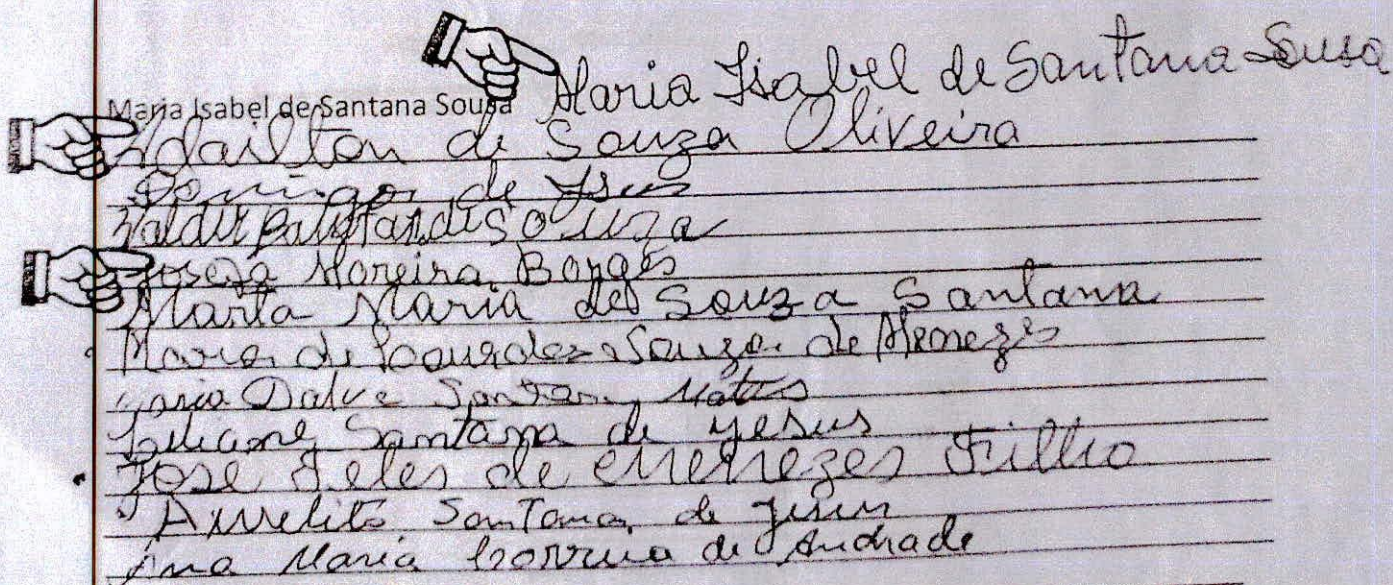 Maria Isabel de Santana Sousa Maria Isabel de Santana Sousa
Adailton de Souza Oliveira
Domingos de Jesus
Valdir Batista de Souza
Josefa Moreira Borges
Marta Maria de Souza Santana
Maria de Lourdes Souza de Menezes
Maria Dalva Santana Matos
Santana de Jesus
Jose Teles de Menezes Filho
Aurelito Santana de Jesus
Ana Maria Correia de Andrade